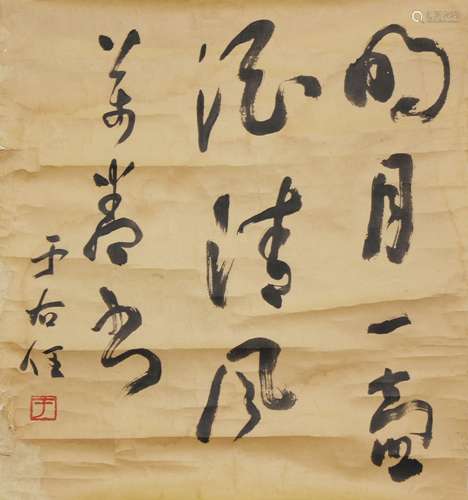 明月一壺
酒清風
萬卷書
于右任